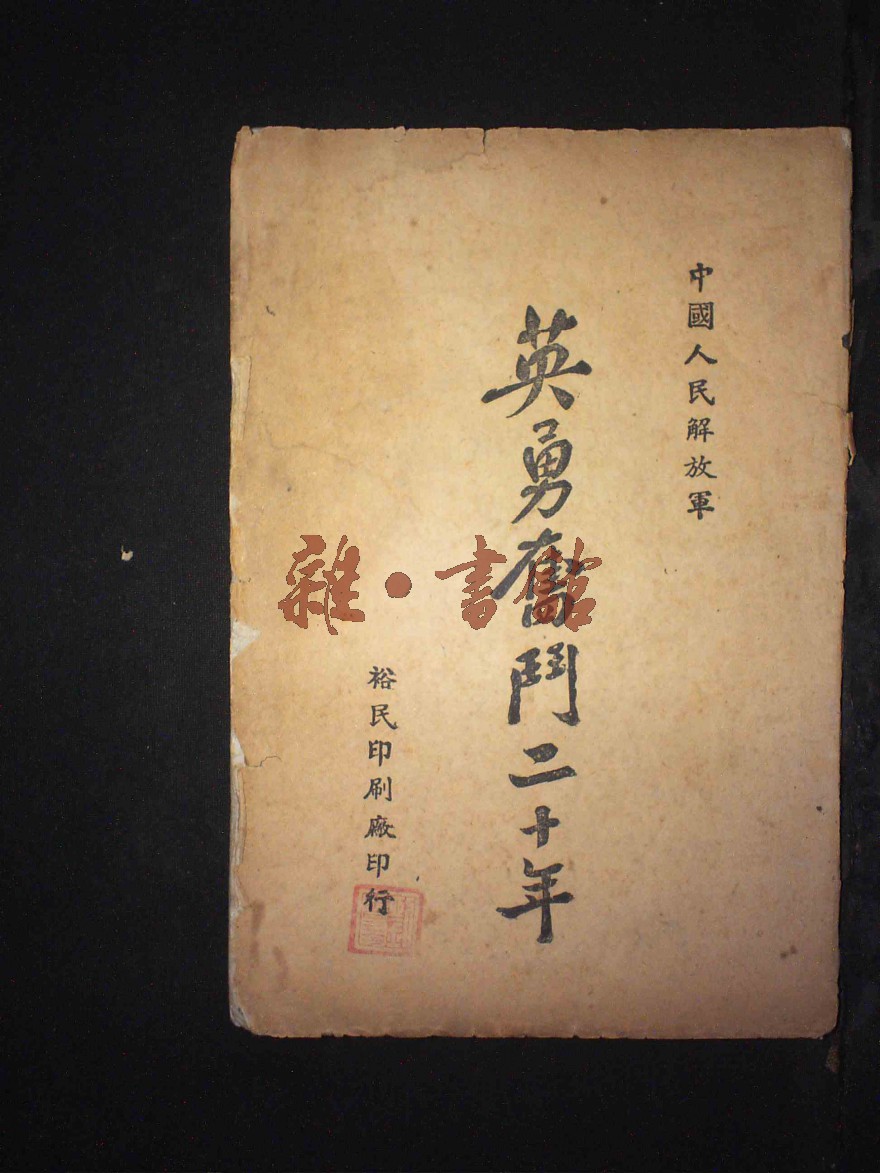 中國人民解放軍
英勇奮鬥二十年
裕民印刷廠印行
雜·書館